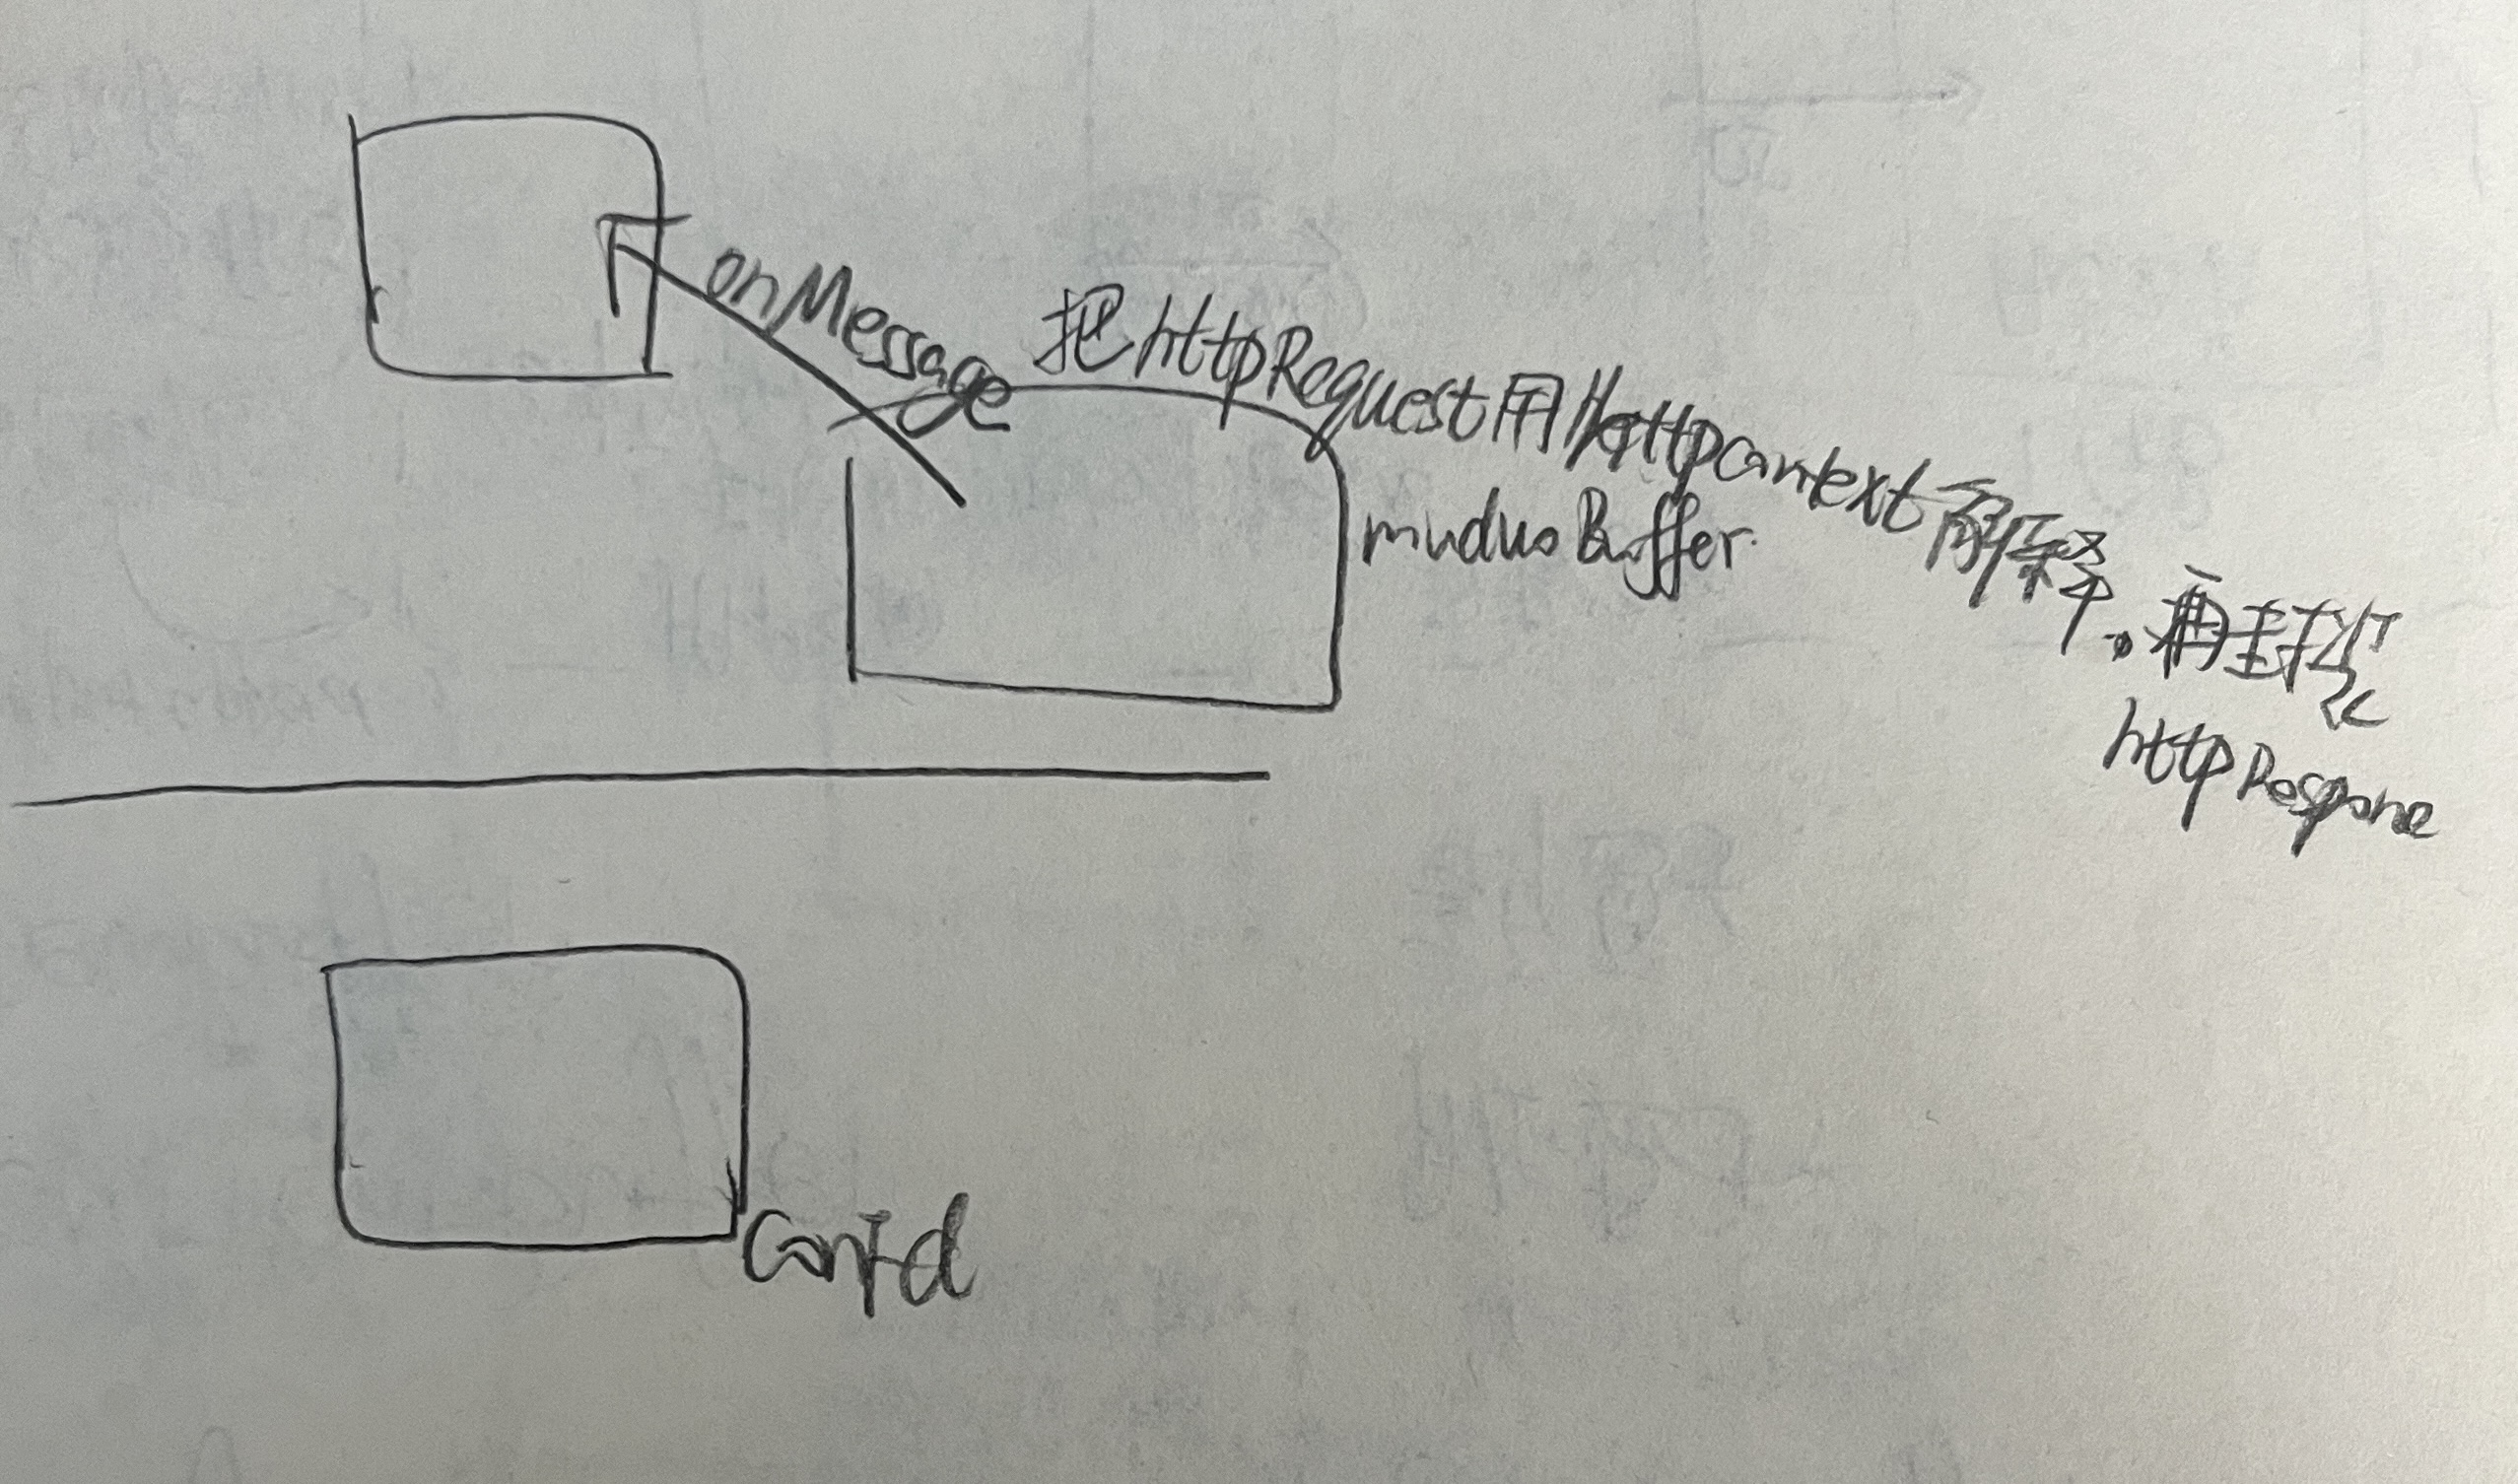 onMessage
把httpRequest用httpcontext解释。再封装
httpRespone
muduo Buffer.
confd